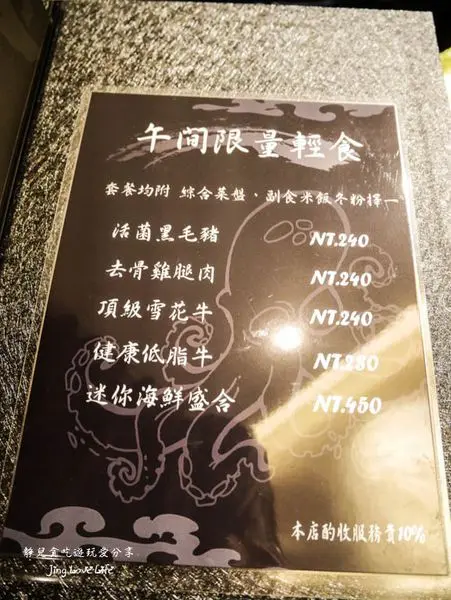 午間限量輕食
套餐均附 綜合菜盤、副食米飯冬粉擇一
活菌黑毛豬 NT.240
去骨雞腿肉 NT.240
頂級雪花牛 NT.240
健康低脂牛 NT.280
迷你海鮮盛合 NT.450
本店酌收服務費10%
靜兒貪吃遊玩愛分享
Jing Love Life